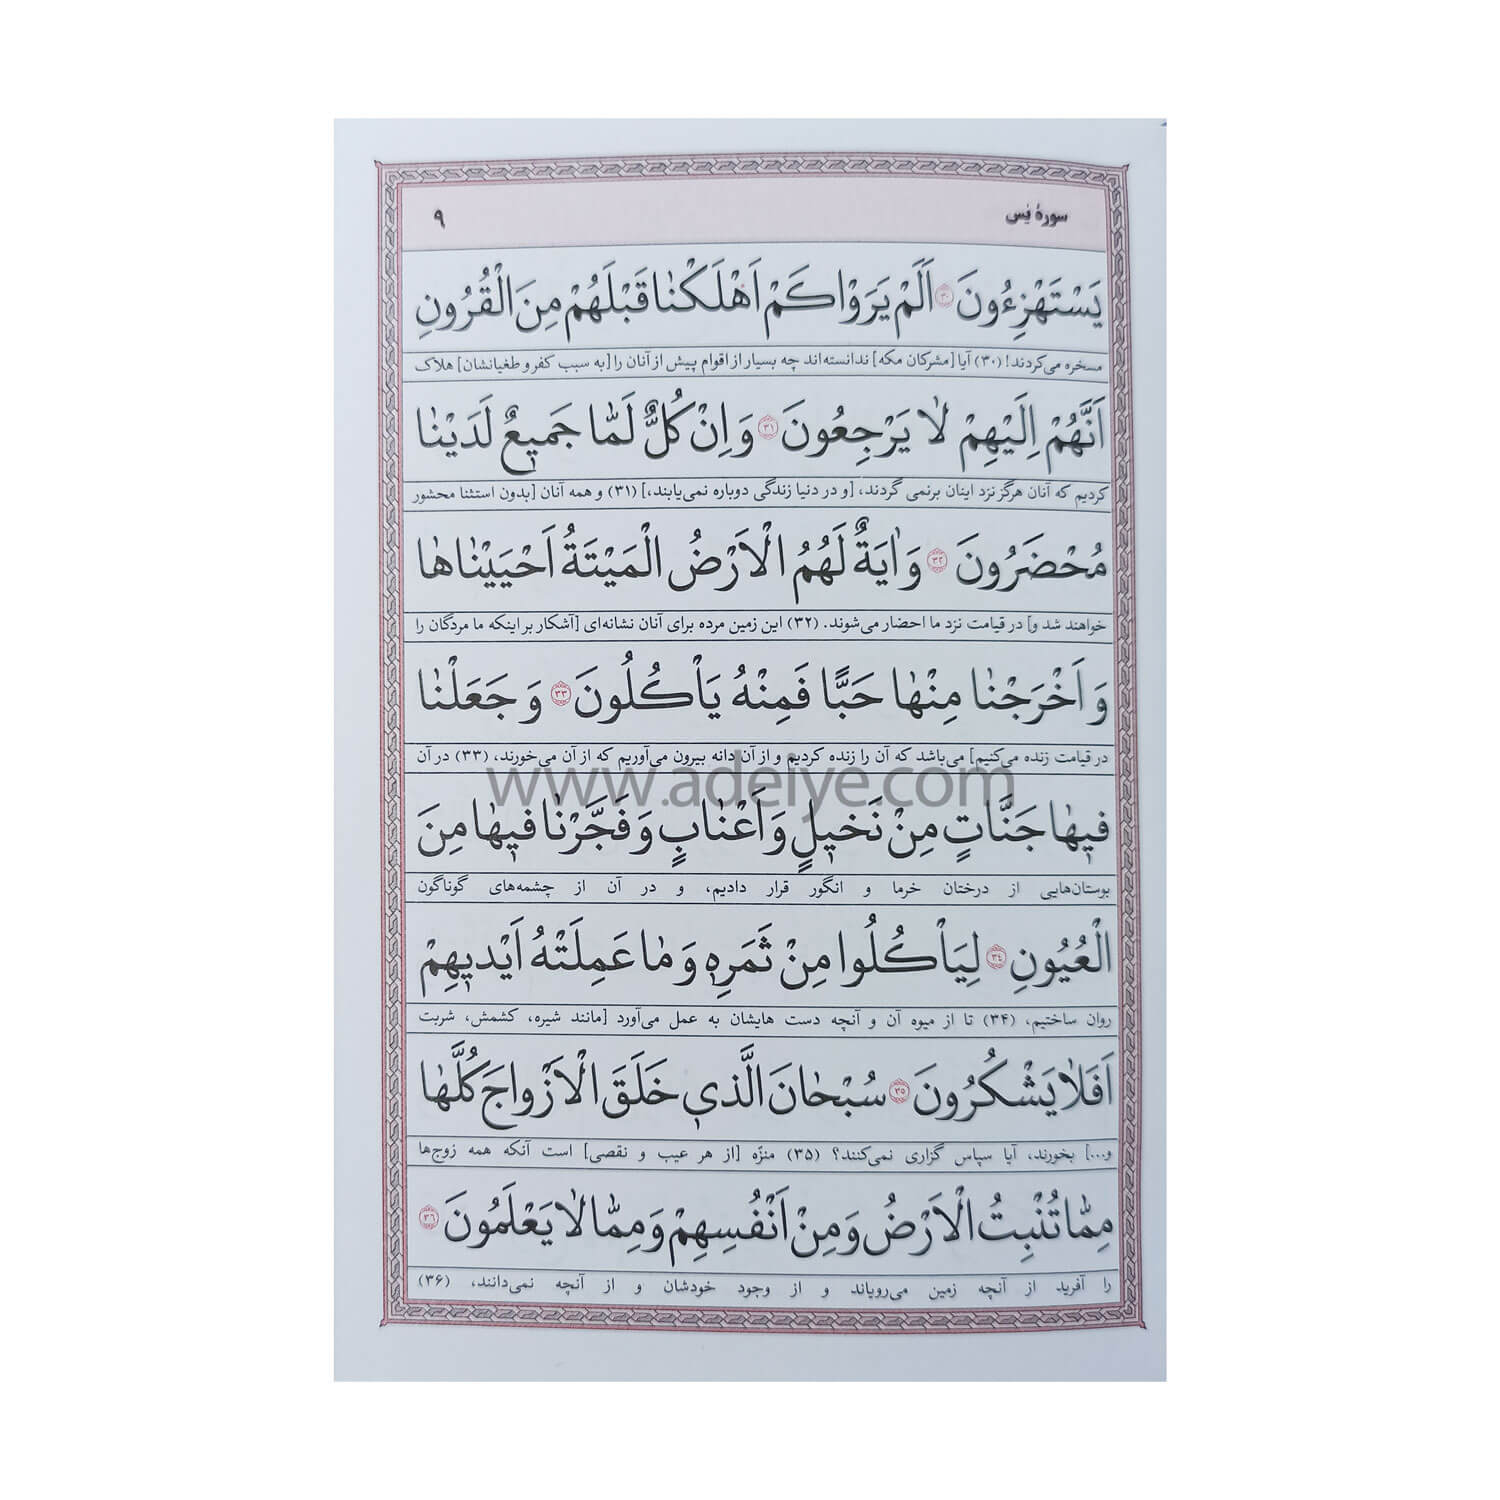 سورهٔ یٰس
۹
یَسْتَهْزِءُونَ ﴿٣٠﴾ اَلَمْ یَرَوْا كَمْ اَهْلَكْنٰا قَبْلَهُمْ مِنَ الْقُرُونِ
مسخره می‌کردند! (۳۰) آیا [مشرکان مکه] ندانسته‌اند چه بسیار از اقوام پیش از آنان را [به سبب کفر و طغیانشان] هلاک
اَنَّهُمْ اِلَیْهِمْ لاٰ یَرْجِعُونَ ﴿٣١﴾ وَ اِنْ كُلٌّ لَمّٰا جَمیٖعٌ لَدَیْنٰا
کردیم که آنان هرگز نزد اینان برنمی گردند، [و در دنیا زندگی دوباره نمی‌یابند،] (۳۱) و همه آنان [بدون استثنا محشور
مُحْضَرُونَ ﴿٣٢﴾ وَ اٰیَةٌ لَهُمُ الْاَرْضُ الْمَیْتَةُ اَحْیَیْنٰاهٰا
خواهند شد و] در قیامت نزد ما احضار می‌شوند. (۳۲) این زمین مرده برای آنان نشانه‌ای [آشکار بر اینکه ما مردگان را
وَ اَخْرَجْنٰا مِنْهٰا حَبًّا فَمِنْهُ یَأْكُلُونَ ﴿٣٣﴾ وَ جَعَلْنٰا
در قیامت زنده می‌کنیم] می‌باشد که آن را زنده کردیم و از آن دانه بیرون می‌آوریم که از آن می‌خورند، (۳۳) در آن
www.adeiye.com
فیٖهٰا جَنّٰاتٍ مِنْ نَخیٖلٍ وَ اَعْنٰابٍ وَ فَجَّرْنٰا فیٖهٰا مِنَ
بوستان‌هایی از درختان خرما و انگور قرار دادیم، و در آن از چشمه‌های گوناگون
الْعُیُونِ ﴿٣٤﴾ لِیَأْكُلُوا مِنْ ثَمَرِهٖ وَ مٰا عَمِلَتْهُ اَیْدیٖهِمْ
روان ساختیم، (۳۴) تا از میوه آن و آنچه دست هایشان به عمل می‌آورد [مانند شیره، کشمش، شربت
اَفَلاٰ یَشْكُرُونَ ﴿٣٥﴾ سُبْحٰانَ الَّذیٖ خَلَقَ الْاَزْوٰاجَ كُلَّهٰا
و...] بخورند، آیا سپاس گزاری نمی‌کنند؟ (۳۵) منزّه [از هر عیب و نقصی] است آنکه همه زوج‌ها
مِمّٰا تُنْبِتُ الْاَرْضُ وَ مِنْ اَنْفُسِهِمْ وَ مِمّٰا لاٰ یَعْلَمُونَ ﴿٣٦﴾
را آفرید از آنچه زمین می‌رویاند و از وجود خودشان و از آنچه نمی‌دانند، (۳۶)